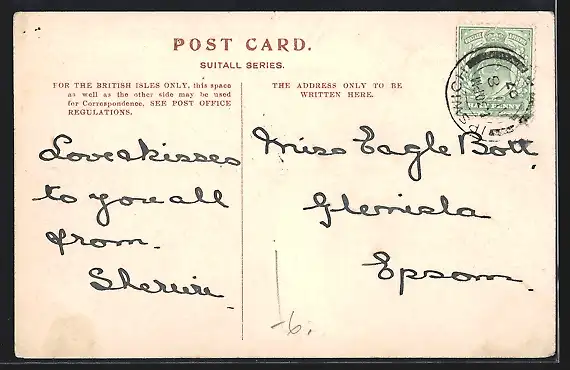 POST CARD.
SUITALL SERIES.
FOR THE BRITISH ISLES ONLY, this space
as well as the other side may be used
for Correspondence. SEE POST OFFICE
REGULATIONS.
THE ADDRESS ONLY TO BE
WRITTEN HERE.
Love & kisses
to you all
from.
Miss Eagle Bott.
Glenisla
Epsom.
-6.
HALFPENNY
IPSWICH